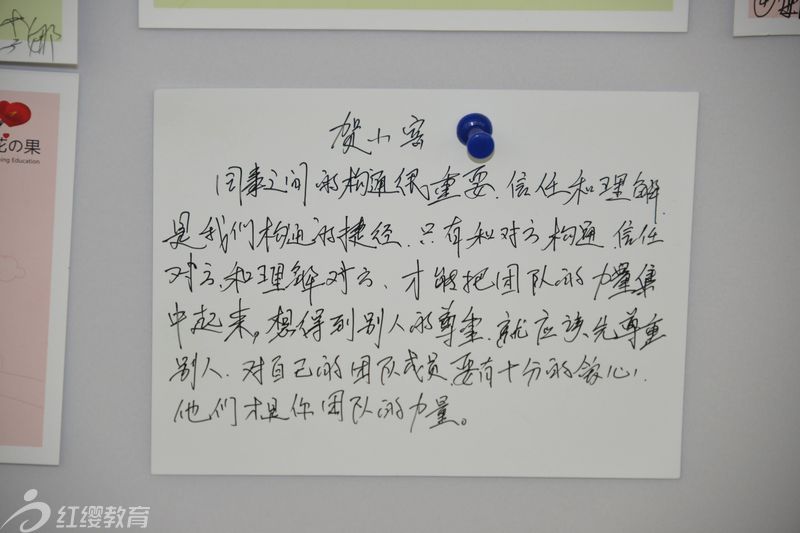 娜
花の果
ning Education
贺小容
同事之间的构通很重要.信任和理解
是我们构通的捷径.只有和对方构通.信任
对方.和理解对方.才能把团队的力量集
中起来。想得到别人的尊重.就应该先尊重
别人.对自己的团队成员要有十分的信心.
他们才是你团队的力量。
红缨教育